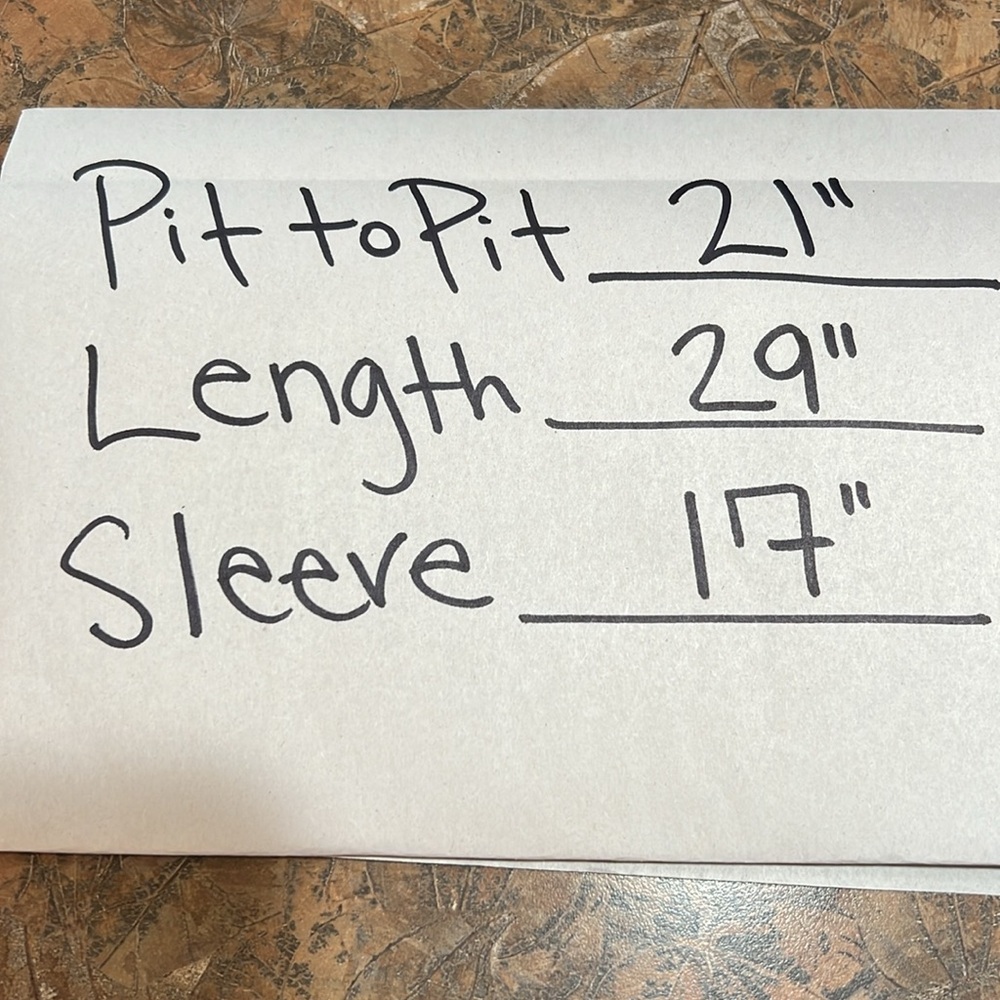 Pit to Pit 21"
Length 29"
Sleeve 17"